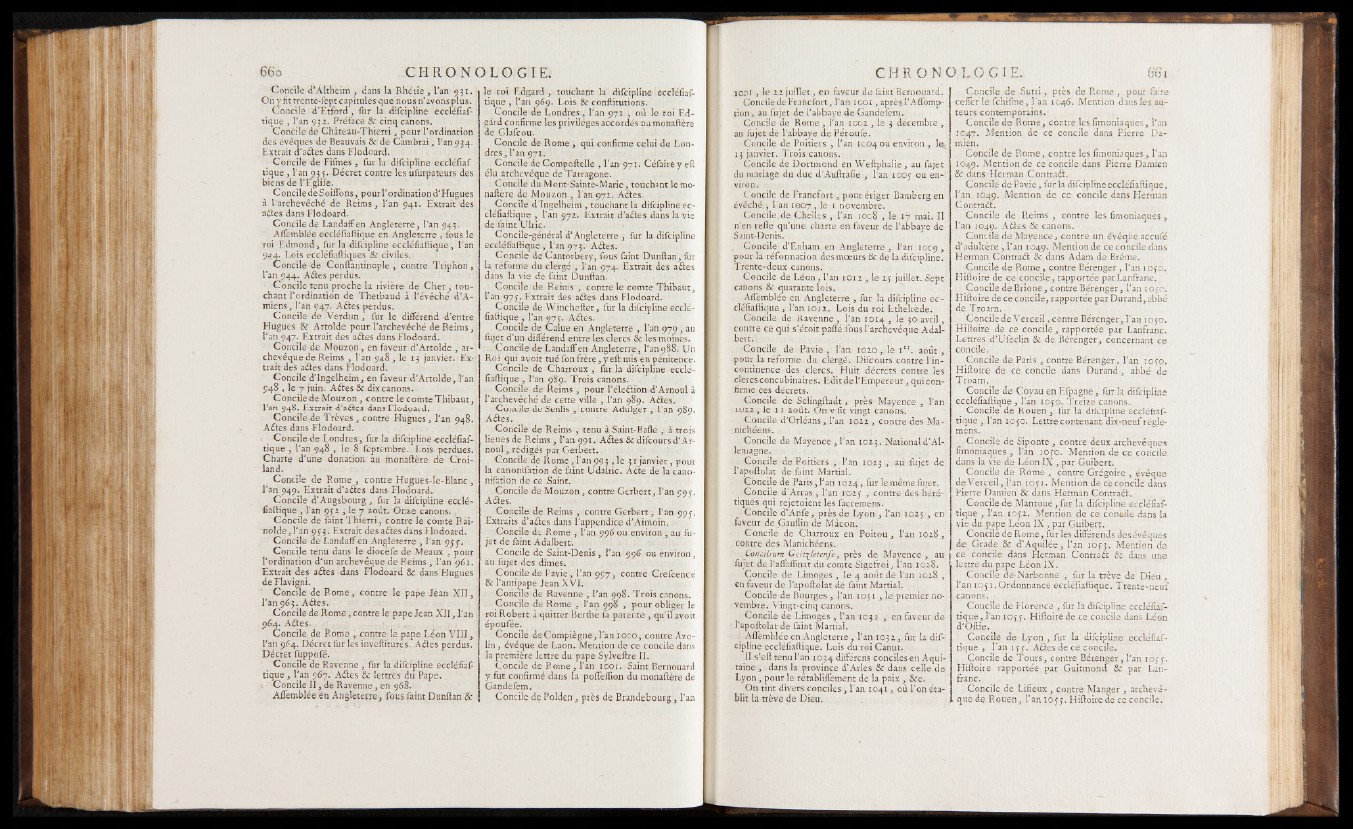 660 CHRONOLOGIE.
Concile d'Altheim , dans la Rhétie , l'an 931.
On y fit trente-ſept capitules que nous n'avons plus.
Concile d'Erford , ſur la diſcipline eccléſiaſ-
tique , l'an 932. Préface & cinq canons.
Concile de Château-Thierri , pour l'ordination
des évêques de Beauvais & de Cambrai , l'an 934.
Extrait d'actes dans Flodoard.
Concile de Fiſmes , ſur la diſcipline eccléſiaſ
tique , l'an 935. Décret contre les uſurpateurs des
biens de l'Egliſe.
Concile de Soiſſons, pour l'ordination d'Hugues
à l'archevêché de Reims , l'an 941. Extrait des
actes dans Flodoard.
Concile de Landaff en Angleterre , l'an 943.
Aſſemblée eccléſiaſtique en Angleterre , ſous le
roi Edmond , ſur la diſcipline eccléſiaſtique , l'an
944. Lois eccléſiaſtiques & civiles.
Concile de Conſtantinople , contre Triphon ,
l'an 944. Actes perdus.
Concile tenu proche la rivière de Cher , tou-
chant l'ordination de Thetbaud à l'évêché d'A-
miens , l'an 947. Actes perdus.
Concile de Verdun , ſur le différend d'entre
Hugues & Artolde pour l'archevêché de Reims ,
l'an 947. Extrait des actes dans Flodoard.
Concile de Mouzon , en faveur d'Artolde , ar-
chevêque de Reims , l'an 948 , le 13 janvier. Ex-
trait des actes dans Flodoard.
Concile d'Ingelheim , en faveur d'Artolde , l'an
948 , le 7 juin. Actes & dix canons.
Concile de Mouzon , contre le comte Thibaut ,
l'an 948. Extrait d'actes dans Flodoard.
Concile de Trèves , contre Hugues , l'an 948.
Actes dans Flodoard.
Concile de Londres, ſur la diſcipline eccléſiaſ-
tique , l'an 948 , le 8 ſeptembre. Lois perdues.
Charte d'une donation au monaſtère de Croi-
land.
Concile de Rome , contre Hugues-le-Blanc ,
l'an 949. Extrait d'actes dans Flodoard.
Concile d'Augsbourg , ſur la diſcipline ecclé-
ſiaſtique , l'an 952 , le 7 août. Onze canons.
Concile de ſaint Thierri, contre le comte Rai-
nolde , l'an 953. Extrait des actes dans Flodoard.
Concile de Landaff en Angleterre , l'an 955.
Concile tenu dans le diocèſe de Meaux , pour
l'ordination d'un archevêque de Reims , l'an 961.
Extrait des actes dans Flodoard & dans Hugues
de Flavigni.
Concile de Rome , contre le pape Jean XII ,
l'an 963. Actes.
Concile de Rome , contre le pape Jean XII , l'an
964. Actes.
Concile de Rome , contre le pape Léon VIII ,
l'an 964. Décret ſur les inveſtitures. Actes perdus.
Décret ſuppoſé.
Concile de Ravenne , ſur la diſcipline eccléſiaſ-
tique , l'an 967. Actes & lettres du Pape.
Concile II , de Ravenne , en 968.
Aſſemblée en Angleterre , ſous ſaint Dunſtan &
le roi Edgard , touchant la diſcipline eccléſiaſ-
tique , l'an 969. Lois & conſtitutions.
Concile de Londres , l'an 971 , où le roi Ed-
gard confirme les privilèges accordés au monaſtère
de Glaſcou.
Concile de Rome , qui confirme celui de Lon-
dres , l'an 971.
Concile de Compoſtelle , l'an 971. Céſaire y eſt
élu archevêque de Tarragone.
Concile du Mont-Sainte-Marie , touchant le mo-
naſtère de Mouzon , l'an 972. Actes.
Concile d'Ingelheim , touchant la diſcipline ec-
cléſiaſtique , l'an 972. Extrait d'actes dans la vie
de ſaint Ulric.
Concile-général d'Angleterre , ſur la diſcipline
eccléſiaſtique , l'an 973. Actes.
Concile de Cantorbéry, ſous ſaint Dunſtan , ſur
la réforme du clergé , l'an 974. Extrait des actes
dans la vie de ſaint Dunſtan.
Concile de Reims , contre le comte Thibaut ,
l'an 975. Extrait des actes dans Flodoard.
Concile de Wincheſter, ſur la diſcipline ecclé-
ſiaſtique , l'an 975. Actes.
Concile de Calne en Angleterre , l'an 979 , au
ſujet d'un différend entre les clercs & les moines.
Concile de Landaff en Angleterre , l'an 988. Un
Roi qui avoit tué ſon frère , y eſt mis en pénitence.
Concile de Charroux , ſur la diſcipline ecclé-
ſiaſtique , l'an 989. Trois canons.
Concile de Reims , pour l'élection d'Arnoul à
l'archevêché de cette ville , l'an 989. Actes.
Concile de Senlis , contre Adulger , l'an 989.
Actes.
Concile de Reims , tenu à Saint-Baſle , à trois
lieues de Reims , l'an 991. Actes & diſcours d'Ar-
noul , rédigés par Gerbert.
Concile de Rome , l'an 993 , le 31 janvier , pour
la canoniſation de ſaint Udalric. Acte de la cano-
niſation de ce Saint.
Concile de Mouzon , contre Gerbert , l'an 995.
Actes.
Concile de Reims , contre Gerbert , l'an 995.
Extraits d'actes dans l'appendice d'Aimoin.
Concile de Rome , l'an 996 ou environ , au ſu-
jet de ſaint Adalbert.
Concile de Saint-Denis , l'an 996 ou environ ,
au ſujet des dîmes.
Concile de Pavie , l'an 997 , contre Creſcence
& l'antipape Jean XVI.
Concile de Ravenne , l'an 998. Trois canons.
Concile de Rome , l'an 998 , pour obliger le
roi Robert à quitter Berthe ſa parente , qu'il avoit
épouſée.
Concile de Compiègne , l'an 1000 , contre Azo-
lin , évêque de Laon. Mention de ce concile dans
la première lettre du pape Sylveſtre II.
Concile de Rome , l'an 1001. Saint Bernouard
y fut confirmé dans la poſſeſſion du monaſtère de
Gandeſem.
Concile de Polden , près de Brandebourg , l'an
CHRONOLOGIE. 661
1001 , le 22 juillet , en faveur de ſaint Bernouard.
Concile de Francfort , l'an 1001 , après l'Aſſomp-
tion , au ſujet de l'abbaye de Gandeſem.
Concile de Rome , l'an 1002 , le 3 décembre ,
au ſujet de l'abbaye de Pérouſe.
Concile de Poitiers , l'an 1004 ou environ , le
13 janvier. Trois canons.
Concile de Dortmond en Weſtphalie , au ſujet
du mariage du duc d'Auſtraſie , l'an 1005 ou en-
viron.
Concile de Francfort , pour ériger Bamberg en
évêché , l'an 1007 , le 1 novembre.
Concile de Chelles , l'an 1008 , le 17 mai. Il
n'en reſte qu'une charte en faveur de l'abbaye de
Saint-Denis.
Concile d'Enham en Angleterre , l'an 1009 ,
pour la réformation des mœurs & de la diſcipline.
Trente-deux canons.
Concile de Léon , l'an 1012 , le 25 juillet. Sept
canons & quarante lois.
Aſſemblée en Angleterre , ſur la diſcipline ec-
cléſiaſtique , l'an 1012. Lois du roi Ethelrède.
Concile de Ravenne , l'an 1014 , le 30 avril ,
contre ce qui s'étoit paſſé ſous l'archevêque Adal-
bert.
Concile de Pavie , l'an 1020 , le 1er. août ,
pour la réforme du clergé. Diſcours contre l'in-
continence des clercs. Huit décrets contre les
clercs concubinaires. Edit de l'Empereur , qui con-
firme ces décrets.
Concile de Selingſtadt , près Mayence , l'an
1022 , le 12 août. On y fit vingt canons.
Concile d'Orléans , l'an 1022 , contre des Ma-
nichéens.
Concile de Mayence , l'an 1023. National d'Al-
lemagne.
Concile de Poitiers , l'an 1023 , au ſujet de
l'apoſtolat de ſaint Martial.
Concile de Paris , l'an 1024 , ſur le même ſujet.
Concile d'Arras , l'an 1025 , contre des héré-
tiques qui rejetoient les ſacremens.
Concile d'Anſe , près de Lyon , l'an 1025 , en
faveur de Gauſlin de Mâcon.
Concile de Charroux en Poitou , l'an 1028 ,
contre des Manichéens.
près de Mayence , au
ſujet de l'aſſaſſinat du comte Sigefroi , l'an 1028.
Concile de Limoges , le 4 août de l'an 1028 ,
en faveur de l'apoſtolat de ſaint Martial.
Concile de Bourges , l'an 1031 , le premier no-
vembre. Vingt-cinq canons.
Concile de Limoges , l'an 1031 , en faveur de
l'apoſtolat de ſaint Martial.
Aſſemblée en Angleterre , l'an 1032 , ſur la diſ-
cipline eccléſiaſtique. Lois du roi Canut.
Il s'eſt tenu l'an 1034 différens conciles en Aqui-
taine , dans la province d'Arles & dans celle de
Lyon , pour le rétabliſſement de la paix , &c.
On tint divers conciles , l'an 1041 , où l'on éta-
blit la trève de Dieu.
Concile de Sutri , près de Rome , pour faire
ceſſer le ſchiſme , l'an 1046. Mention dans les au-
teurs contemporains.
Concile de Rome , contre les ſimoniaques , l'an
1047. Mention de ce concile dans Pierre Da-
mien.
Concile de Rome , contre les ſimoniaques , l'an
1049. Mention de ce concile dans Pierre Damien
& dans Herman Contract.
Concile de Pavie , ſur la diſcipline eccléſiaſtique,
l'an 1049. Mention de ce concile dans Herman
Contract.
Concile de Reims , contre les ſimoniaques ,
l'an 1049. Actes & canons.
Concile de Mayence , contre un évêque accuſé
d'adultère , l'an 1049. Mention de ce concile dans
Herman Contract & dans Adam de Brême.
Concile de Rome , contre Bérenger , l'an 1050.
Hiſtoire de ce concile , rapportée par Lanfranc.
Concile de Brione , contre Bérenger , l'an 1050.
Hiſtoire de ce concile , rapportée par Durand , abbé
de Troarn.
Concile de Verceil , contre Bérenger , l'an 1050.
Hiſtoire de ce concile , rapportée par Lanfranc.
Lettres d'Uſeclin & de Bérenger , concernant ce
concile.
Concile de Paris , contre Bérenger , l'an 1050.
Hiſtoire de ce concile dans Durand , abbé de
Troarn.
Concile de Coyau en Eſpagne , ſur la diſcipline
eccléſiaſtique , l'an 1050. Treize canons.
Concile de Rouen , ſur la diſcipline eccléſiaſ-
tique , l'an 1050. Lettre contenant dix-neuf règle-
mens.
Concile de Siponte , contre deux archevêques
ſimoniaques , l'an 1050. Mention de ce concile
dans la vie de Léon IX , par Guibert.
Concile de Rome , contre Grégoire , évêque
de Verceil , l'an 1051. Mention de ce concile dans
Pierre Damien & dans Herman Contract.
Concile de Mantoue , ſur la diſcipline eccléſiaſ-
tique , l'an 1052. Mention de ce concile dans la
vie du pape Léon IX , par Guibert.
Concile de Rome , ſur les différends des évêques
de Grade & d'Aquilée , l'an 1053. Mention de
ce concile dans Herman Contract & dans une
lettre du pape Léon IX.
Concile de Narbonne , ſur la trève de Dieu ,
l'an 1051. Ordonnance eccléſiaſtique. Trente-neuf
canons.
Concile de Florence , ſur la diſcipline eccléſiaſ-
tique , l'an 1055. Hiſtoire de ce concile dans Léon
d'Oſtie.
Concile de Lyon , ſur la diſcipline eccléſiaſ-
tique , l'an 155. Actes de ce concile.
Concile de Tours , contre Bérenger , l'an 1055.
Hiſtoire rapportée par Guitmond & par Lan-
franc.
Concile de Liſieux , contre Manger , archevê-
que de Rouen , l'an 1055. Hiſtoire de ce concile.